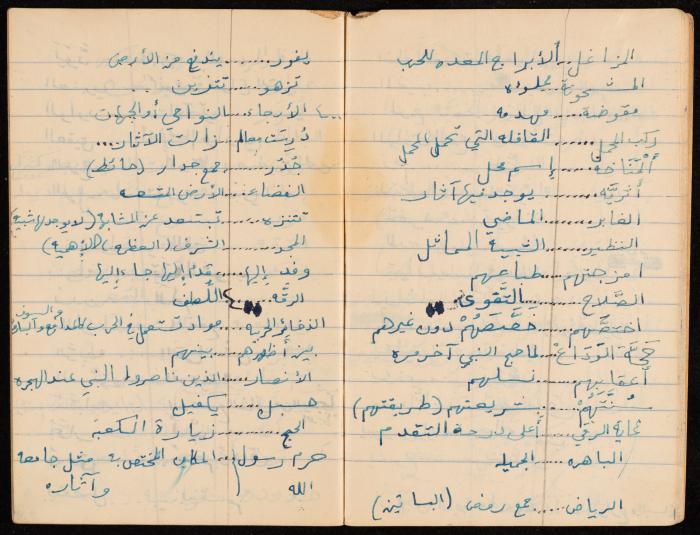 المزاغل... ألأبراج المعده للحرب
المشحونة مملوءه
مقوضة..... مهدمه
ركب المحمل.... القافله التي تحمل المحمل
ألْمَنَاخة.... إسم محل
أثريَّه..... يوجد فيها آثار
الغابر..... الماضي
النظير....... الشبية المماثل
امزجتهم.... طباعهم
الصَّلاح........ التَّقوى
اختصَّهم..... خَصَّصَهُمْ دون غيرهم
حَجَّة الوَدَاعْ.... لما حج النبي آخر مره
أعقابهم...... نسلهم
سُنَّتَهُمْ...... شريعتهم (طريقتهم)
غاية الرقي.... أعلى درجة التقدم
الباهره.... الجميله
الرياض..... جمع روض (البساتين)
يفور........ يندفع من الأرض
تزهو..... تتزين
الأرجاء..... النواحي أو الجهات
دُرِسَت معالم..... زالت الآثار...
جُدُر...... جمع جدار (حائط)
الفضاء..... الأرض المتسعه
تتنزه....... تبتعد عن المشابه (لا يوجد لها شبيه)
المجد..... الشرف (العظمه) (الأهمية)
وفد إليها.... قدم إليها جاء إليها
الرقَّه...... اللُطف
الذخائر الحربيه.... مواد تستعمل في الحرب كالمدافع والبارود السيوف
بين أظهرهم..... بينهم
الأنصار..... الذين ناصروا النبي عند الهجره
حسبك..... يكفيك
الحج........ زيارة الكعبة
حرم رسول الله.... المكان المختص به مثل جامعه وآثاره